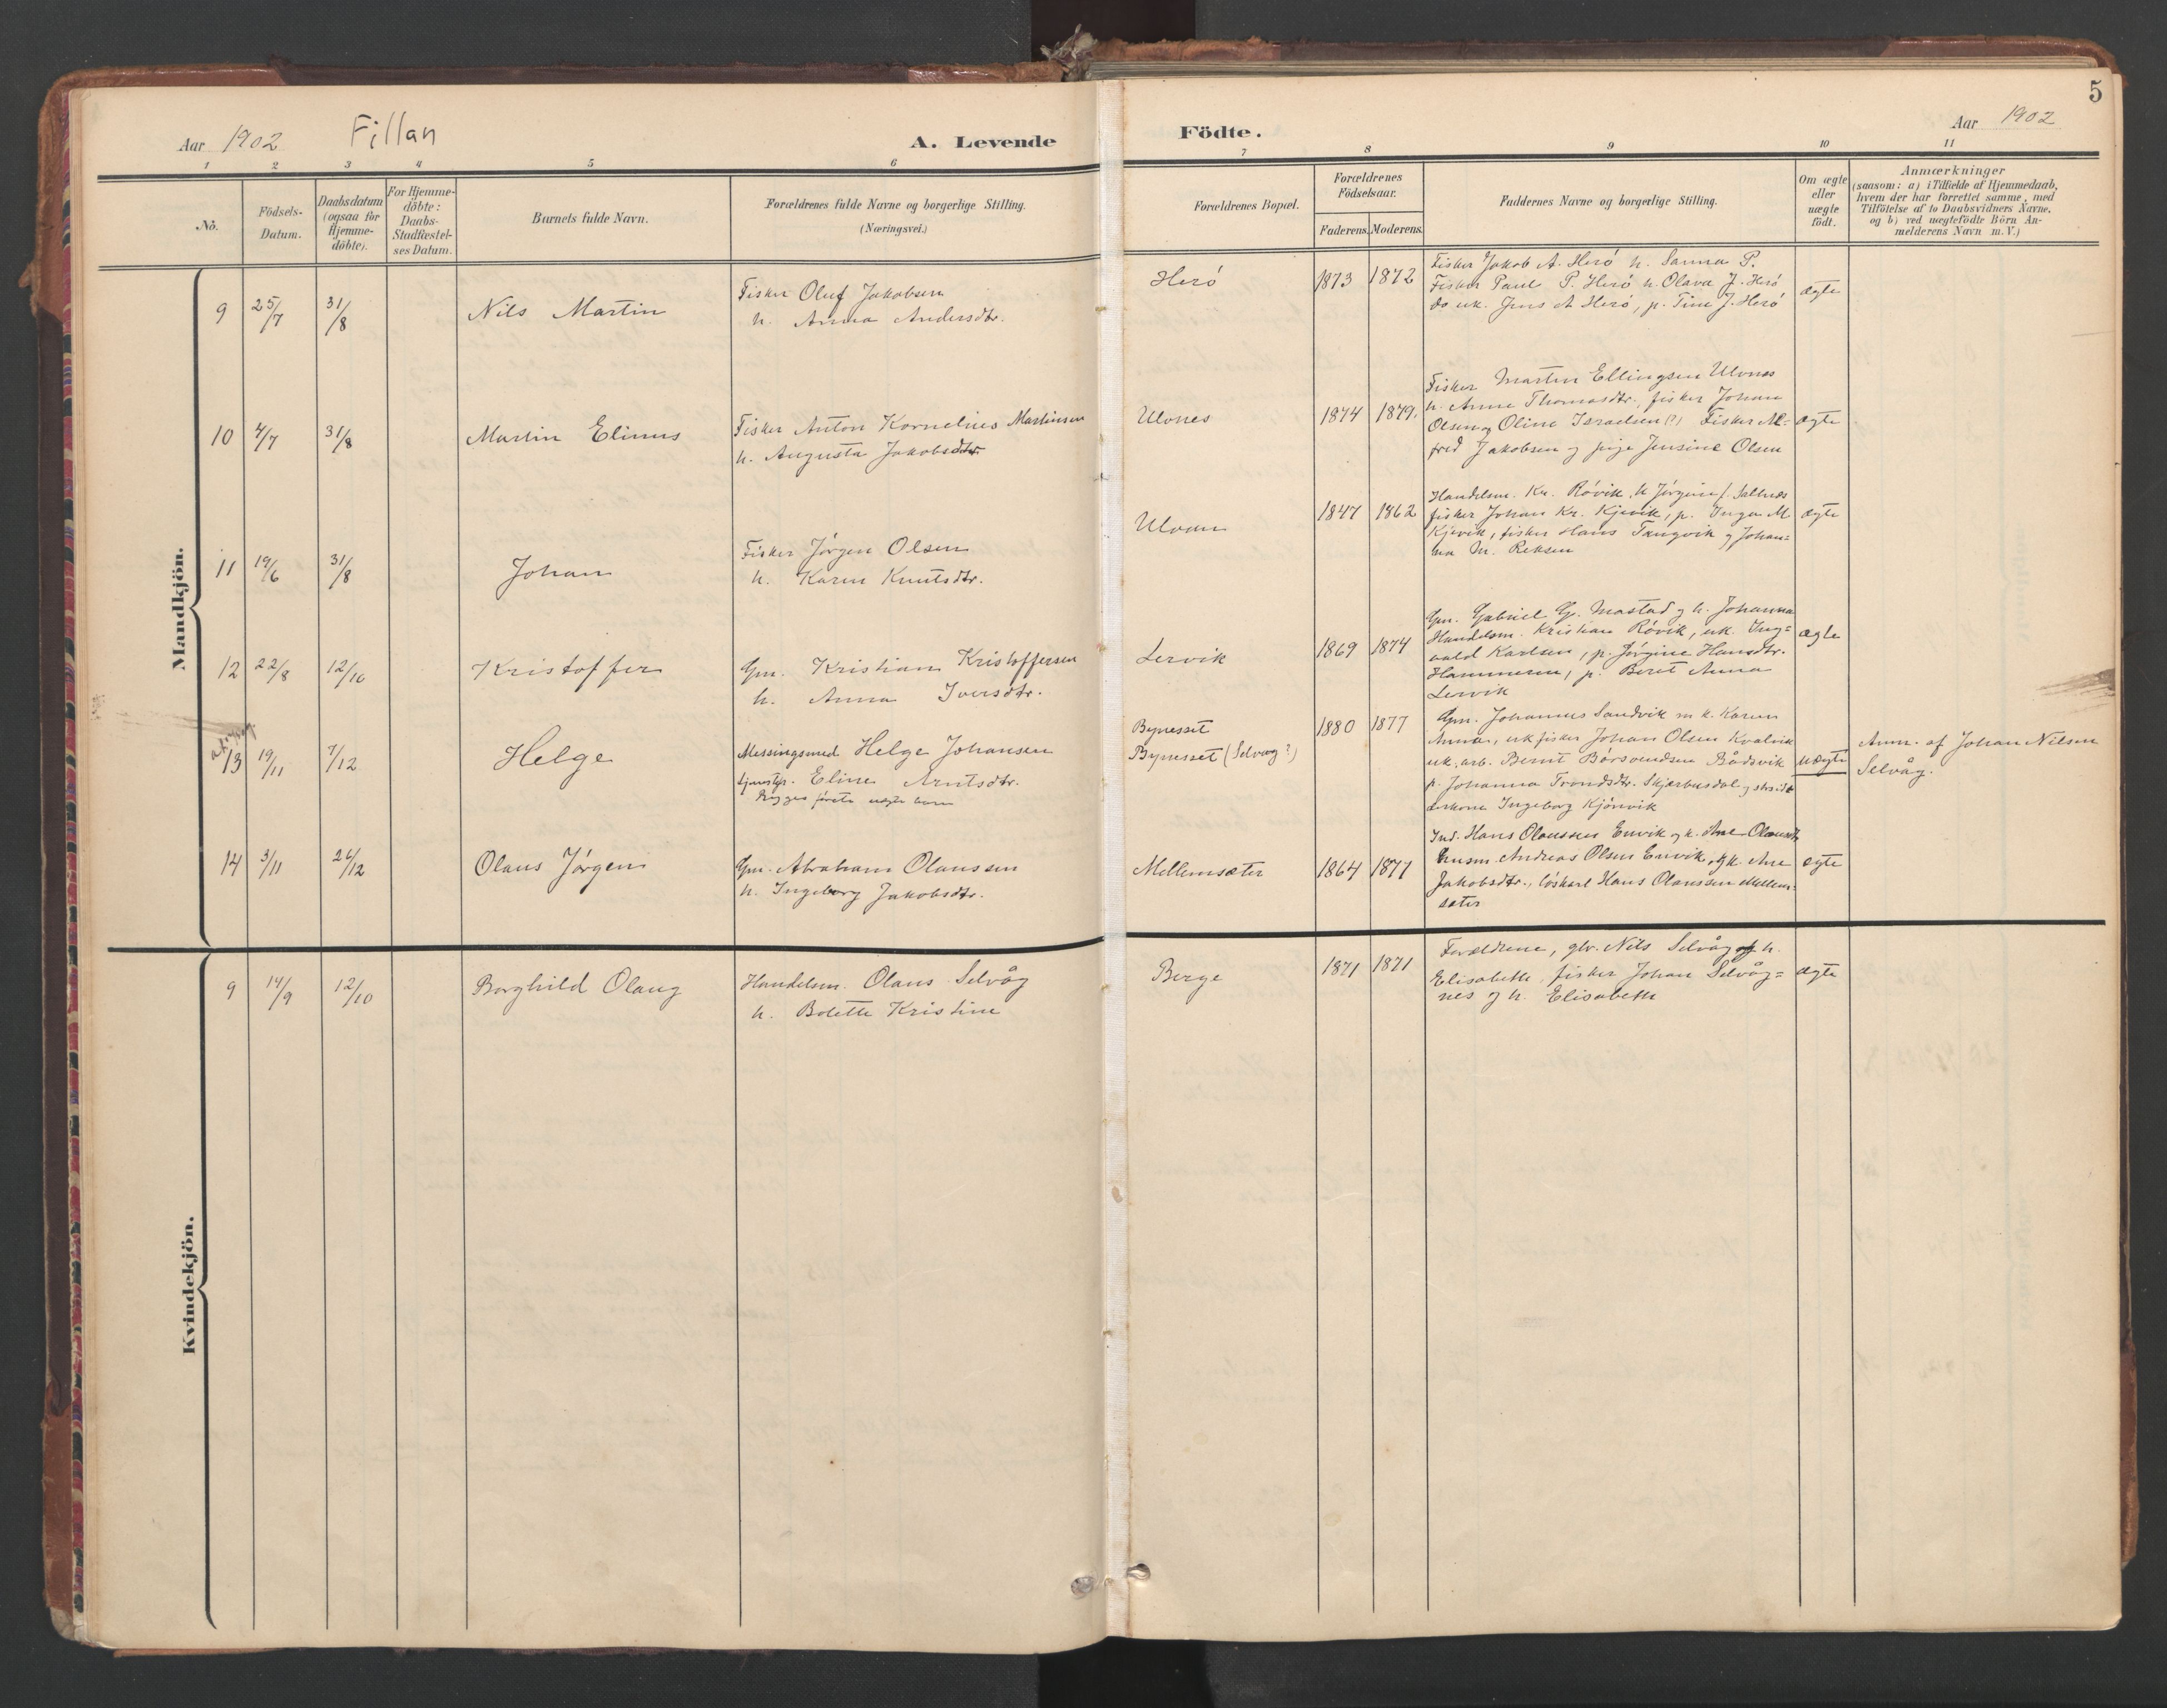 5
Aar 1902 Fillan A. Levende Födte. Aar 1902
1 2 3 4 5 6 7 8 9 10 11
No.
Födsels-
Datum.
Daabsdatum
(ogsaa for
Hjemme-
döbte).
For Hjemme-
döbte:
Daabs-
Stadfæstel-
ses Datum.
Barnets fulde Navn.
Forældrenes fulde Navne og borgerlige Stilling.
(Næringsvei.)
Forældrenes Bopæl.
Forældrenes
Födselsaar.
Faderens. Moderens.
Faddernes Navne og borgerlige Stilling.
Om ægte
eller
uægte
födt.
Anmærkninger
(saasom: a) i Tilfælde af Hjemmedaab,
hvem der har forrettet samme, med
Tilföielse af to Daabsvidners Navne,
og b) ved uægtefödte Börn An-
melderens Navn m. V.)
Mandkjön.
9 25/7 31/8 Nils Martin
Fisker Oluf Jakobsen
h. Anna Andersdtr.
Herö 1873 1872
Fisker Jakob A. Herö h. Sanna P.
Fisker Paul P. Herö h. Olava J. Herö
do uk. Jens A Herö, p. Tine J. Herö
ægte
10 4/7 31/8 Martin Elinus
Fisker Anton Kornelius Martinsen
h. Augusta Jakobsdtr
Ulvnes 1874 1879.
Fisker Martin Ellingsen Ulvnes
h. Anne Thomasdtr., fisker Johan
Olsen og Oline Israelsen (?) Fisker Al-
fred Jakobsen og pige Jensine Olsen
ægte
11 19/6 31/8 Johan
Fisker Jörgen Olsen
h. Karen Knutsdtr.
Ulvan 1847 1862
Handelsm. Kr. Rövik, h Jörgine f. Saltnes
fisker Johan Kr. Kjervik, p. Inga M
Kjervik, fisker Hans Tangvik og Johan=
na M. Reksen
ægte
12 22/8 12/10 Kristoffer
Gm. Kristian Kristoffersen
h. Anna Iversdtr.
Lervik 1869 1874
Gm. Gabriel G. Mastad og h. Johanna
Handelsm. Kristian Rövik, uk. Ing=
vald Karlsen, p. Jörgine Hansdtr.
Hammeren, p. Beret Anna
Lervik
ægte
13 19/11 7/12 Helge
Messingsmed Helge Johansen
tjenstp. Eline Arntsdtr.
Begges förste uægte barn
Bynesset
Bynesset (Selvaag?)
1880 1877
Gm. Johannes Sandvik m h. Karen
Anna, uk fisker Johan Olsen Kvalvik
uk. arb. Bernt Börsvendsen Bådsvik
p. Johanna Trondsdtr. Skjærbusdal og
Ingeborg Kjönvik
uægte
Anm. af Johan Nilsen
Selvåg.
14 3/11 26/12 Olaus Jörgen
Gm. Abraham Olaussen
h. Ingeborg Jakobsdtr.
Mellemsæter 1864 1877
Ind. Hans Olaussen Envik og h. Ane Olausdtr
husm. Andreas Olsen Envik og k. Ane
Jakobsdtr., löskarl Hans Olaussen Mellem-
sæter
ægte
Kvindekjön.
9 14/9 12/10 Borghild Olaug
Handelsm. Olaus Selvåg
h. Bolette Kristine
Berge 1871 1871
Forældrene, gbr. Nils Selvåg og h.
Elisabeth, fisker Johan Selvåg=
nes og h. Elisabeth
ægte